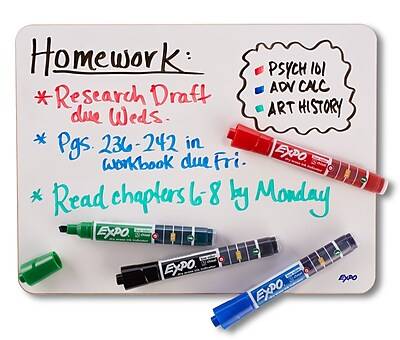 Homework:
PSYCH 101
ADV CALC
ART HISTORY
* Research Draft
due Weds.
* Pgs. 236-242 in
workbook due Fri.
* Read chapters 6-8 by Monday
EXPO
EXPO
EXPO
EXPO
EXPO